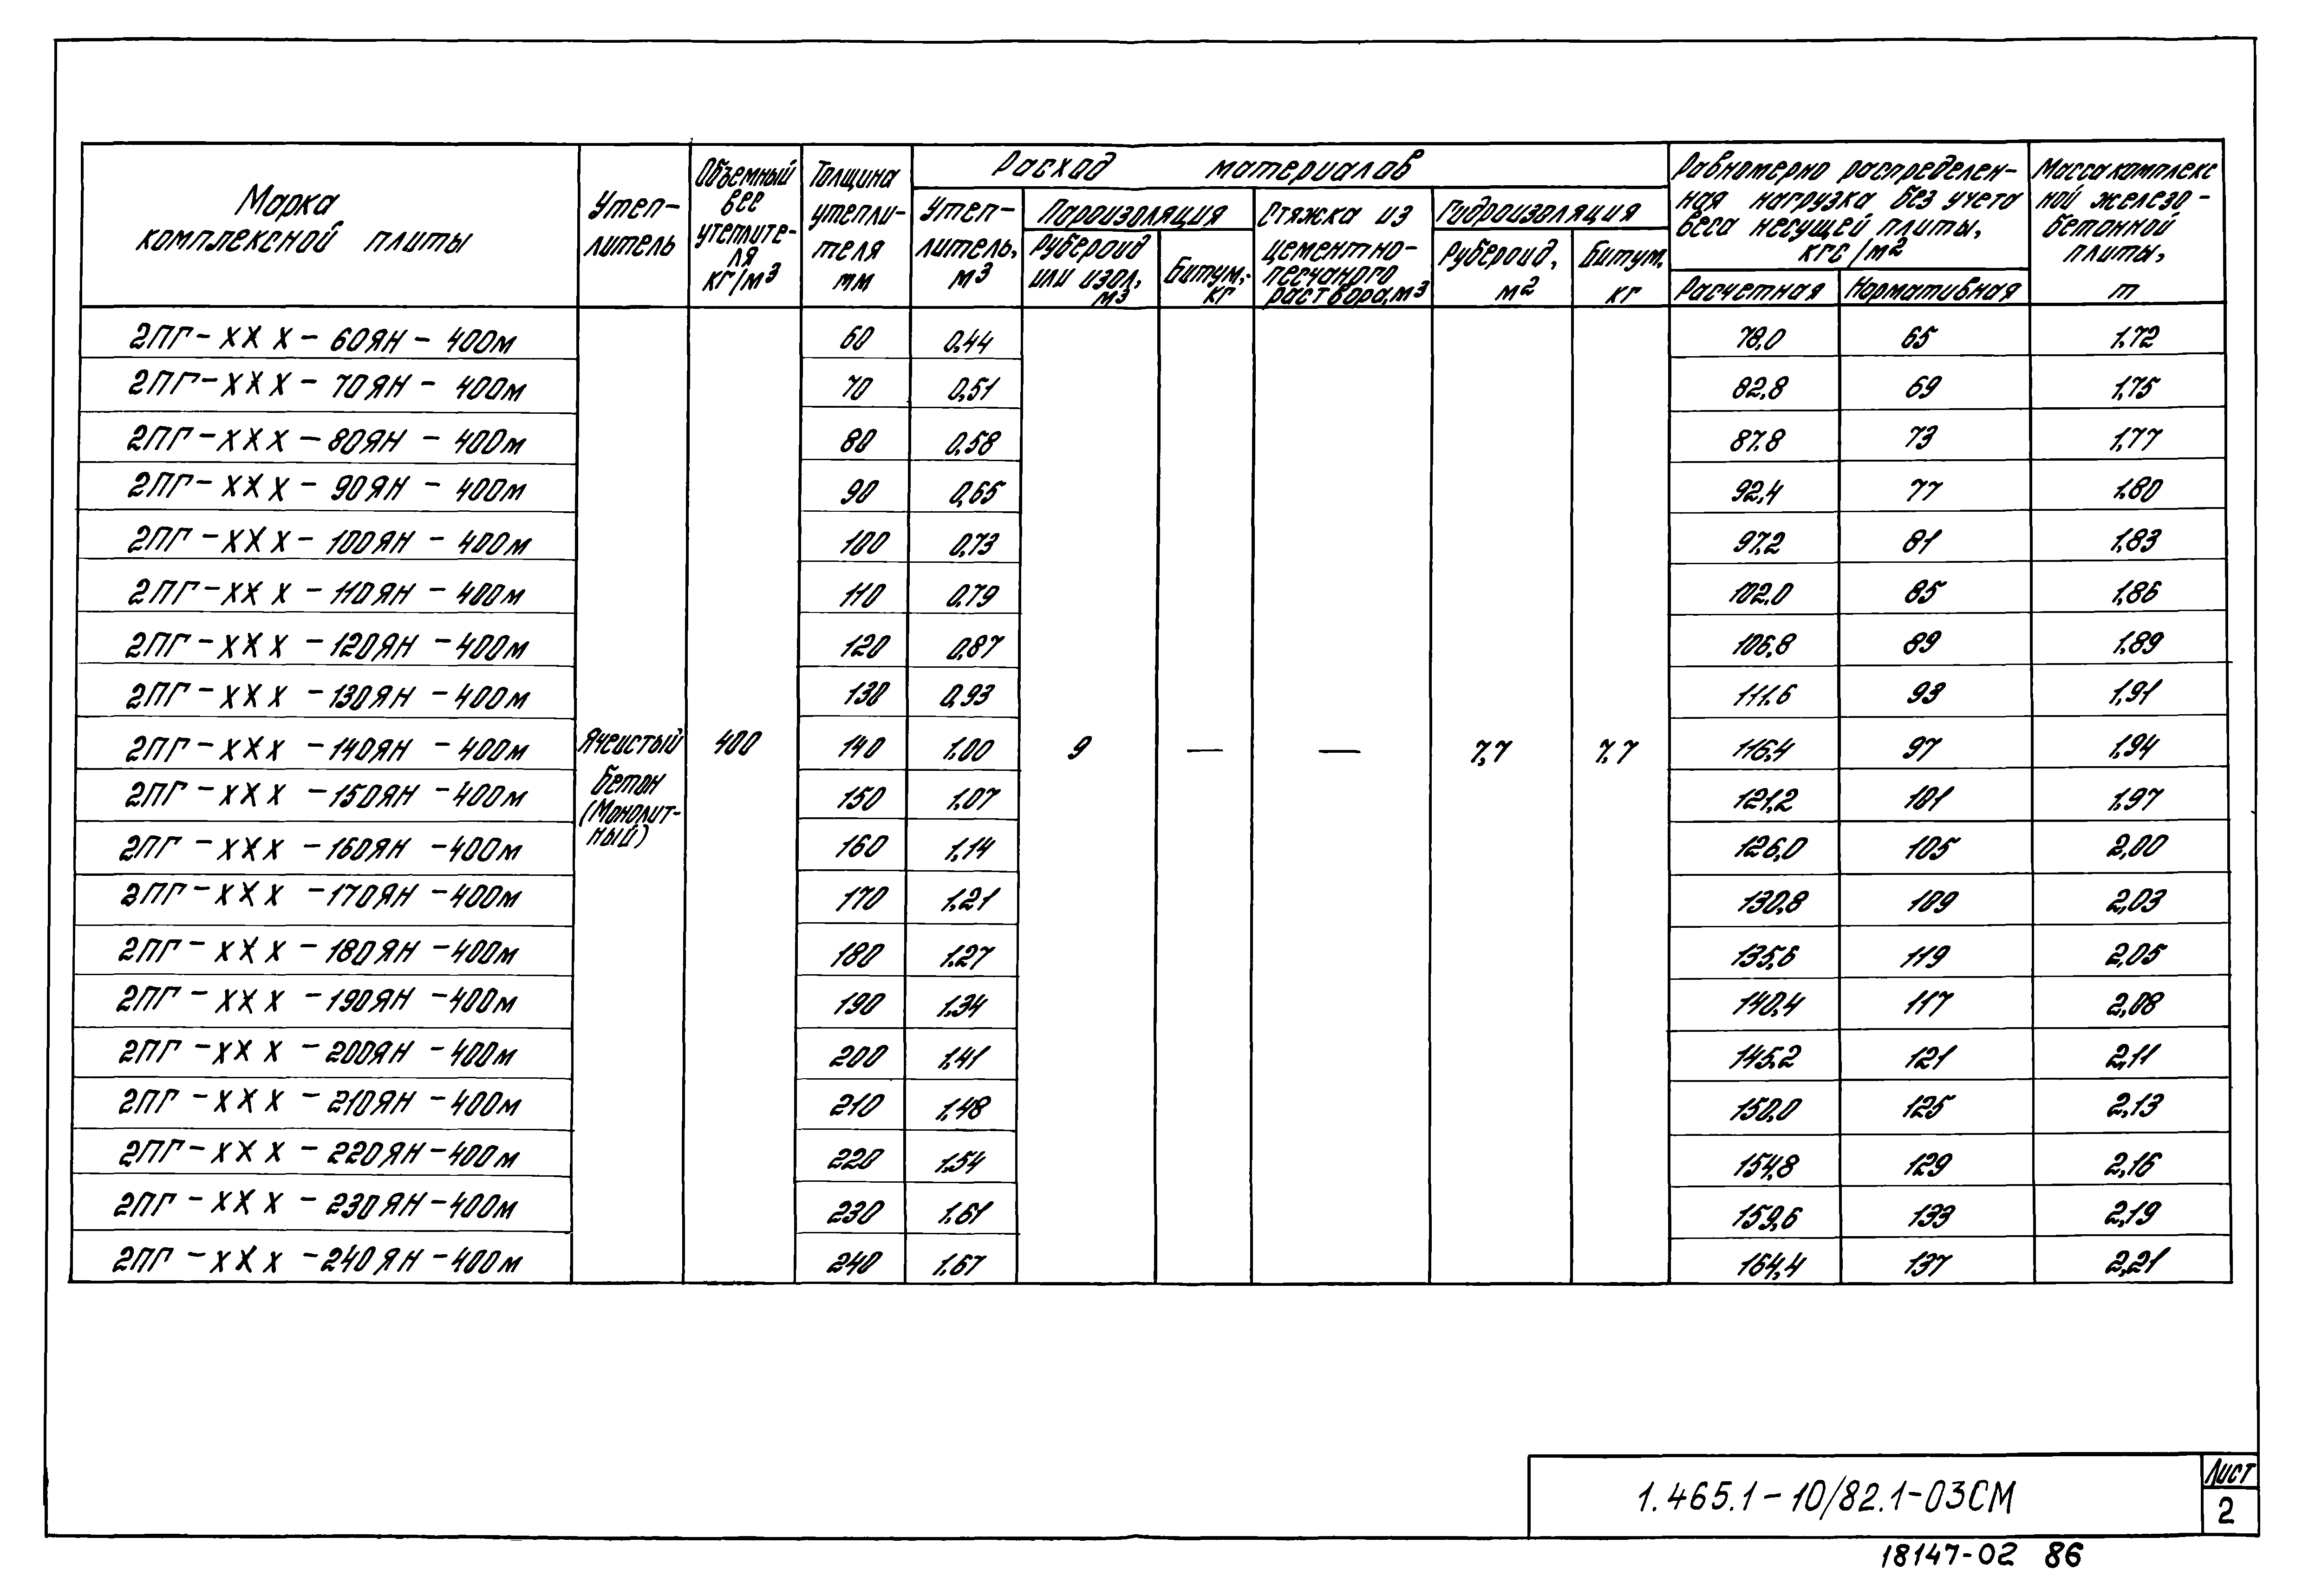 Марка комплексной плиты | Утеп-литель | Объемный вес утеплите-ля кг/м³ | Толщина утепли-теля мм | Расход материалов | Равномерно распределен-ная нагрузка без учета веса несущей плиты, кгс/м² | Масса комплекс ной железо-бетонной плиты, т
Утеп-литель, м³ | Пароизоляция | Стяжка из цементно-песчаного раствора, м³ | Гидроизоляция
Рубероид или изол, м³ | Битум, кг | Рубероид, м² | Битум, кг | Расчетная | Нормативная
2ПГ-ХХХ-60ЯН-400м | 60 | 0,44 | 78,0 | 65 | 1,72
2ПГ-ХХХ-70ЯН-400м | 70 | 0,51 | 82,8 | 69 | 1,75
2ПГ-ХХХ-80ЯН-400м | 80 | 0,58 | 87.8 | 73 | 1,77
2ПГ-ХХХ-90ЯН-400м | 90 | 0,65 | 92,4 | 77 | 1.80
2ПГ-ХХХ-100ЯН-400м | 100 | 0,73 | 97,2 | 81 | 1,83
2ПГ-ХХХ-110ЯН-400м | 110 | 0,79 | 102.0 | 85 | 1,86
2ПГ-ХХХ-120ЯН-400м | 120 | 0,87 | 106,8 | 89 | 1.89
2ПГ-ХХХ-130ЯН-400м | 130 | 0,93 | 111.6 | 93 | 1,91
2ПГ-ХХХ-140ЯН-400м | Ячеистый бетон (монолит-ный) | 400 | 140 | 1.00 | 9 | — | — | 7,7 | 7.7 | 116,4 | 97 | 1,94
2ПГ-ХХХ-150ЯН-400м | 150 | 1.07 | 121,2 | 101 | 1,97
2ПГ-ХХХ-160ЯН-400м | 160 | 1,14 | 126,0 | 105 | 2,00
2ПГ-ХХХ-170ЯН-400м | 170 | 1.21 | 130,8 | 109 | 2,03
2ПГ-ХХХ-180ЯН-400м | 180 | 1.27 | 135,6 | 119 | 2,05
2ПГ-ХХХ-190ЯН-400м | 190 | 1.34 | 140,4 | 117 | 2,08
2ПГ-ХХХ-200ЯН-400м | 200 | 1,41 | 145.2 | 121 | 2,11
2ПГ-ХХХ-210ЯН-400м | 210 | 1,48 | 150,0 | 125 | 2,13
2ПГ-ХХХ-220ЯН-400м | 220 | 1.54 | 154,8 | 129 | 2,16
2ПГ-ХХХ-230ЯН-400м | 230 | 1.61 | 159,6 | 133 | 2,19
2ПГ-ХХХ-240ЯН-400м | 240 | 1.67 | 164,4 | 137 | 2,21
1.465.1-10/82.1-03СМ
Лист
2
18147-02 86